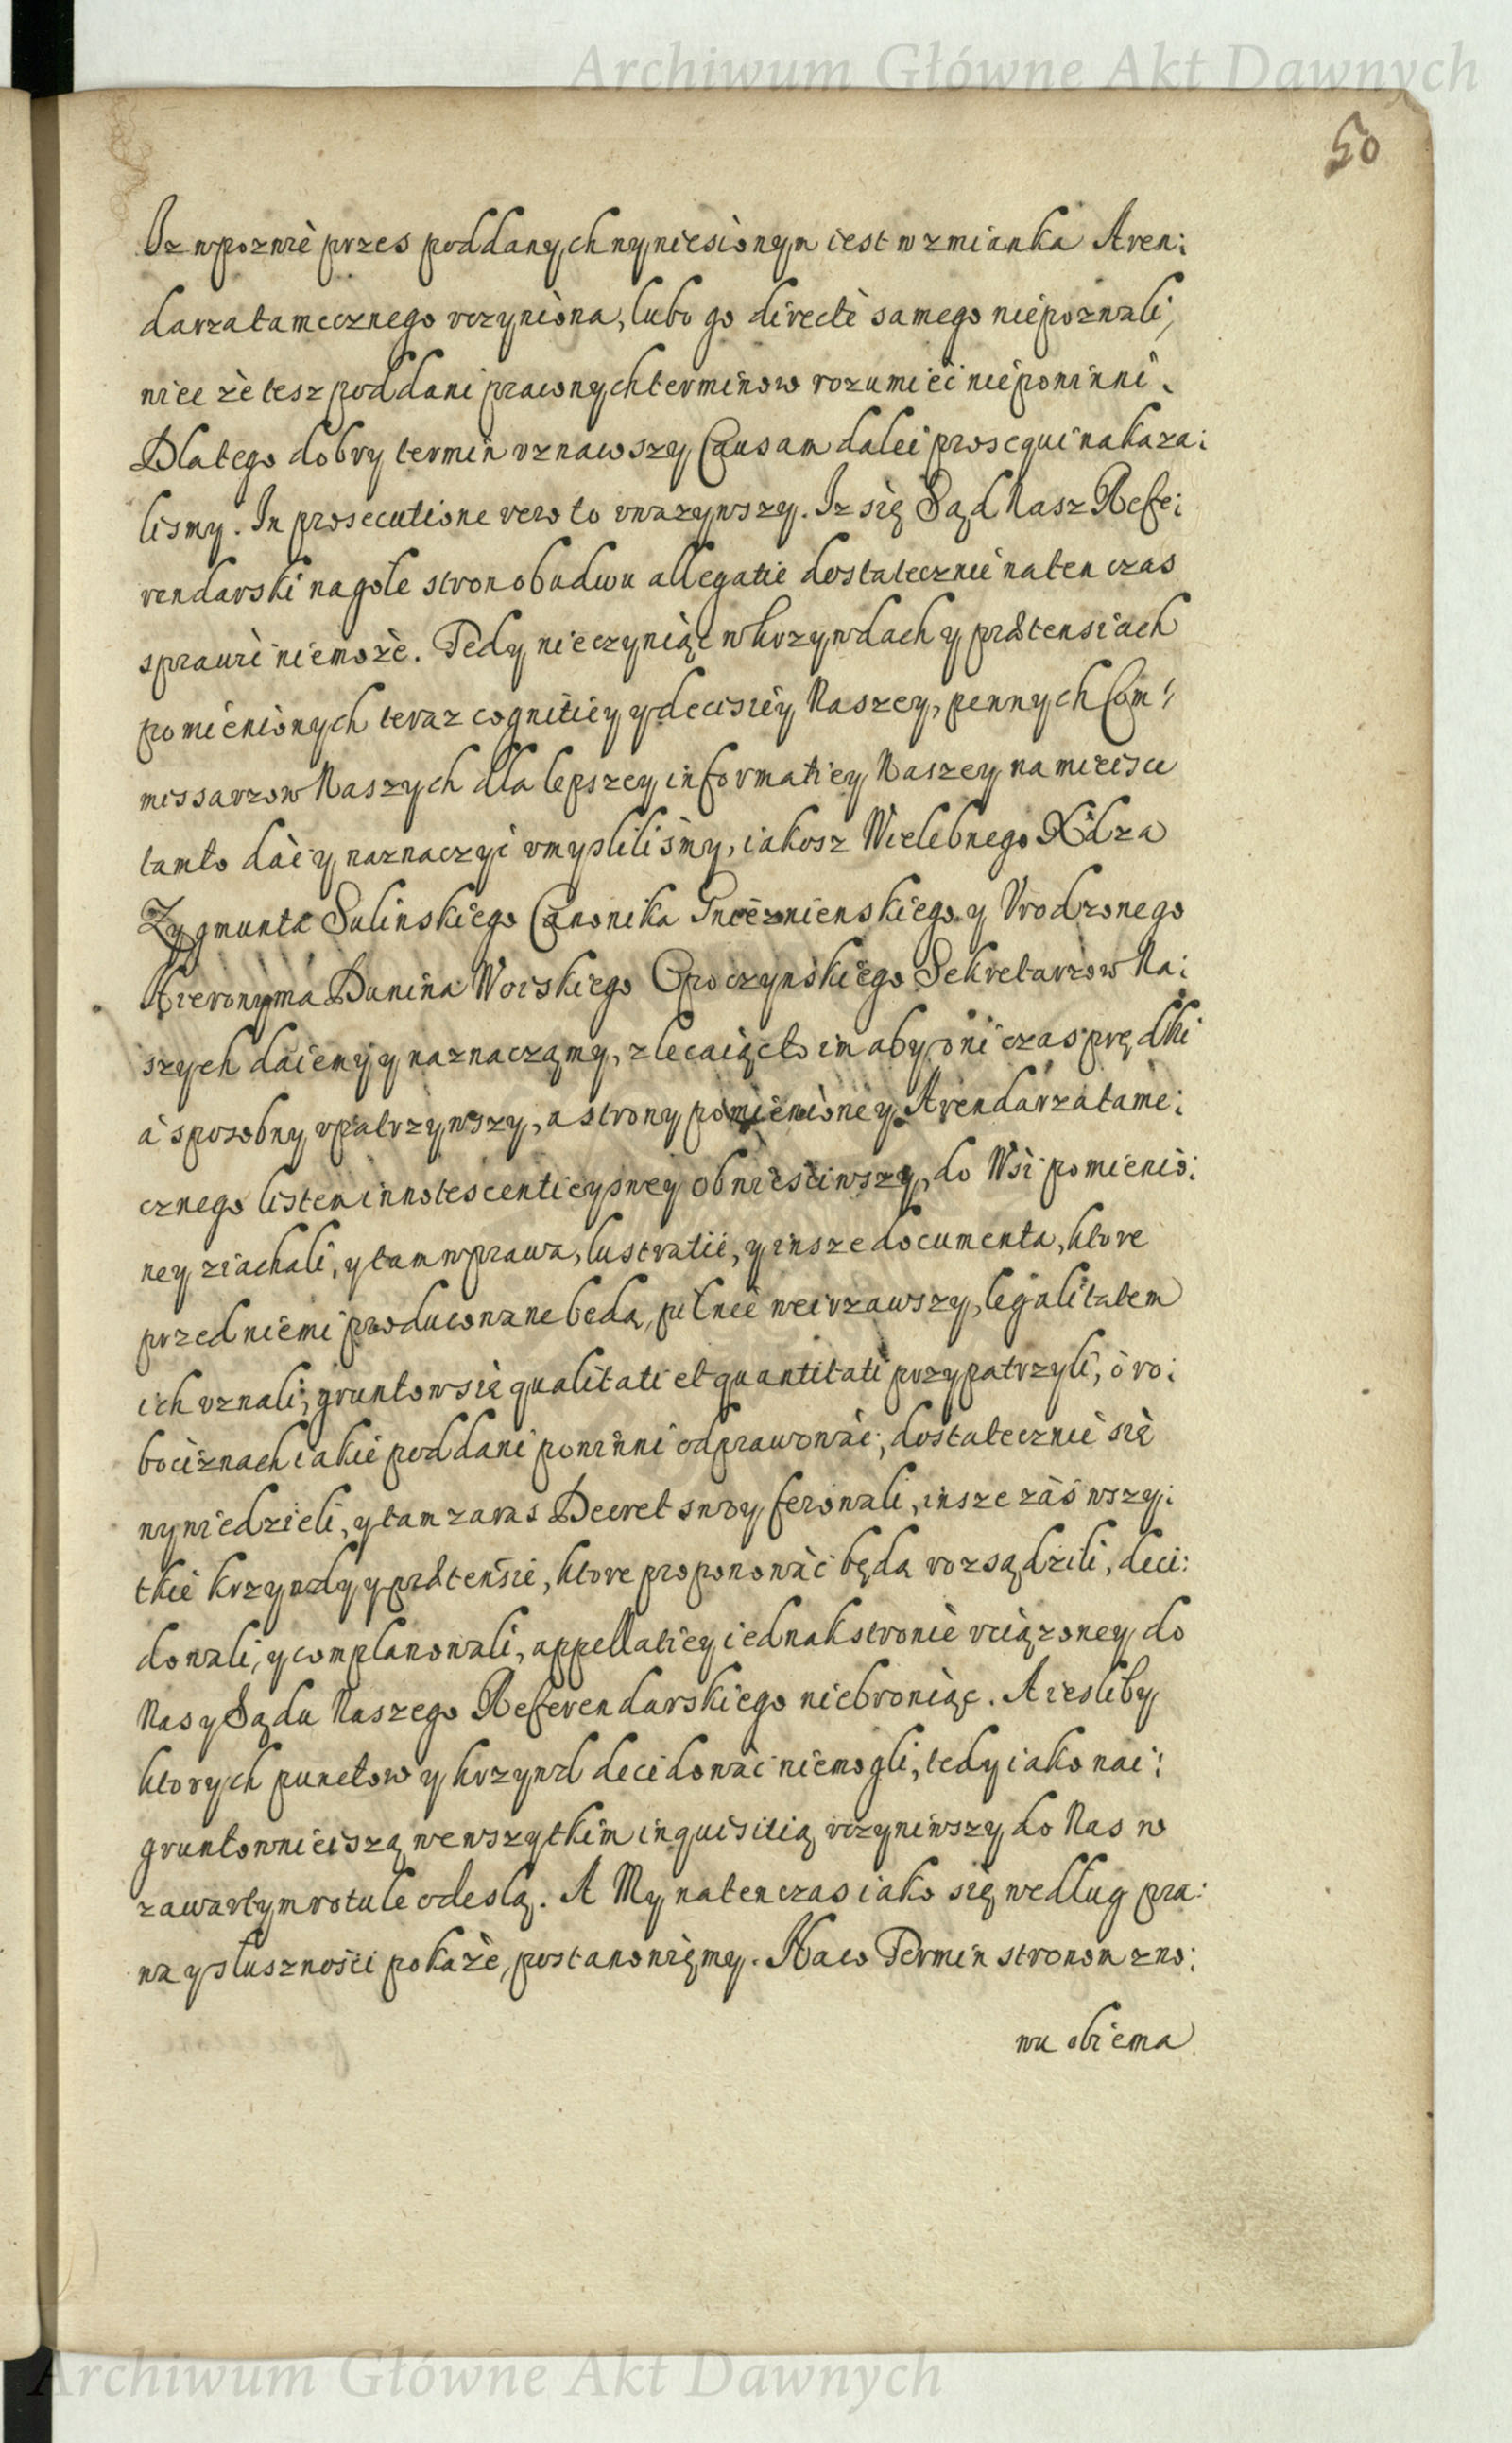 Archiwum Główne Akt Dawnych
50
Iz w pozwie przes poddanych wyniesionym iest wzmianka Aren:
darza tamecznego vczyniona, lubo go directè samego niepozwali,
wiec że tesz poddani prawnych terminow rozumieć niepowinni.
Dlatego dobry termin vznawszy Causam dalei prosequi nakaza:
lismy. In prosecutione vero to vwazywszy. Iz się Sąd Nasz Refe:
rendarski na gołe stron obudwu allegatie dostatecznie na ten czas
sprawić niemoże. Tedy nie czyniąc w krzywdach y prætensiach
pomienionych teraz cognitiey y decisiey Naszey, pewnych Com:
missarzow Naszych dla lepszey informatiey Naszey na mieisce
tamto dać y naznaczyć vmyslilismy, iakosz Wielebnego Xdza
Zygmunta Sulinskiego Canonika Gnieznienskiego y Vrodzonego
Hieronyma Dunina Woiskiego Opoczynskiego Sekretarzow Na:
szych daiemy y naznaczamy, zlecaiąc to im aby oni czas prędki
a sposobny vpatrzywszy, a strony pomienioney Arendarza tame:
cznego listem innotescentiey swey obwiesciwszy, do Wsi pomienio:
ney ziachali, y tam w prawa, lustratie, y insze documenta, ktore
przed niemi producowane beda, pilnie weirzawszy, legalitatem
ich vznali, gruntow się qualitati et quantitati przypatrzyli, o ro:
bociznach iakie poddani powinni odprawować, dostatecznie się
wywiedzieli, y tam zaras Decret swoy ferowali, insze zaś wszy:
tkie krzywdy y prætensie, ktore proponować będą rozsądzili, deci:
dowali, y complanowali, appellatiey iednak stronie vciązoney do
Nas y Sądu Naszego Referendarskiego niebroniąc. A iesliby
ktorych punctow y krzywd decidować niemogli, tedy iako nai:
gruntownieiszą we wszytkim inquisitią vczyniwszy do Nas w
zawartym rotule odeslą. A My na ten czas iako się według pra:
wa y słusznosci pokaże, postanowięmy. Na co Termin stronom zno:
wu obiema
Archiwum Główne Akt Dawnych